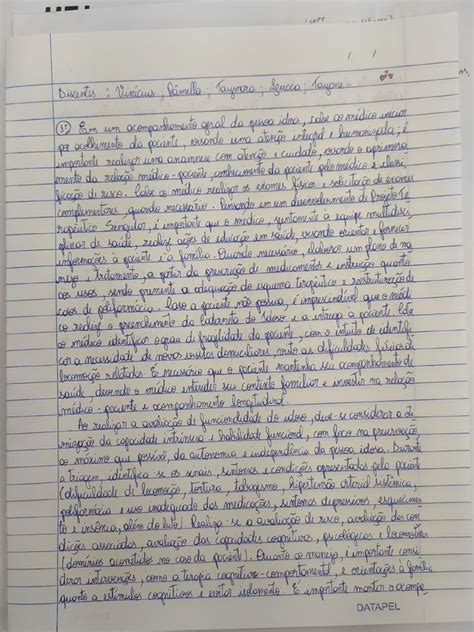 Discentes : Vinícius ; Râmella ; Taynara ; Lucca ; Tayane.
Em um acompanhamento geral da pessoa idosa, cabe ao médico iniciar
por acolhimento da paciente, visando uma atenção integral e humanizada; é
importante realizar uma anamnese com atenção e cuidado, visando o aprimora
mento da relação médico-paciente, conhecimento da paciente pelo médico e classi
ficação de risco. Cabe ao médico realizar os exames físicos e solicitação de exames
complementares, quando necessário. Pensando em um desenvolvimento do Projeto Te
rapêutico Singular, é importante que o médico, juntamente à equipe multidisci
plinar de saúde, realize ações de educação em saúde, visando orientar e fornecer
informações à paciente e à família. Quando necessário, elaborar um plano de ma
nejo e tratamento, a partir da prescrição de medicamentos e instrução quanto
aos usos, sendo premente a adequação do esquema terapêutico e reestruturação de
casos de polifarmácia. Caso a paciente não possua, é imprescindível que o médi
co realize o preenchimento da Caderneta do Idoso e a entregue a paciente. Cabe
ao médico identificar o grau de fragilidade da paciente, com o intuito de identifi
car a necessidade de novas visitas domiciliares, visto as dificuldades físicas de
locomoção relatadas. É necessário que o paciente mantenha seu acompanhamento de
saúde, devendo o médico entender seu contexto familiar e investir na relação
médico-paciente e acompanhamento longitudinal.
Ao realizar a avaliação de funcionalidade do idoso, deve-se considerar a oti
mização da capacidade intrínseca e habilidade funcional, com foco na preservação
ao máximo que possível, da autonomia e independência da pessoa idosa. Durante
a triagem, identifica-se os sinais, sintomas e condições apresentadas pela paciente
(dificuldade de locomoção, tontura, tabagismo, hipertensão arterial sistêmica,
polifarmácia e uso inadequado das medicações, sintomas depressivos, esquecimen
to e insônia, além do luto). Realiza-se a avaliação de risco, avaliação das con
dições associadas, avaliação das capacidades cognitivas, psicológicas e locomotoras
(domínios acometidos no caso da paciente). Quanto ao manejo, é importante consi
derar intervenções, como a terapia cognitivo-comportamental, e orientações à família
quanto a estímulos cognitivos e evitar isolamento. É importante manter o acompa
DATAPEL